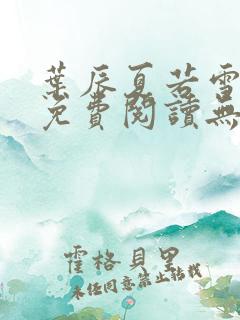 葉辰夏若雪
免費閱讀無
霍格貝里
未任同意禁止轉載